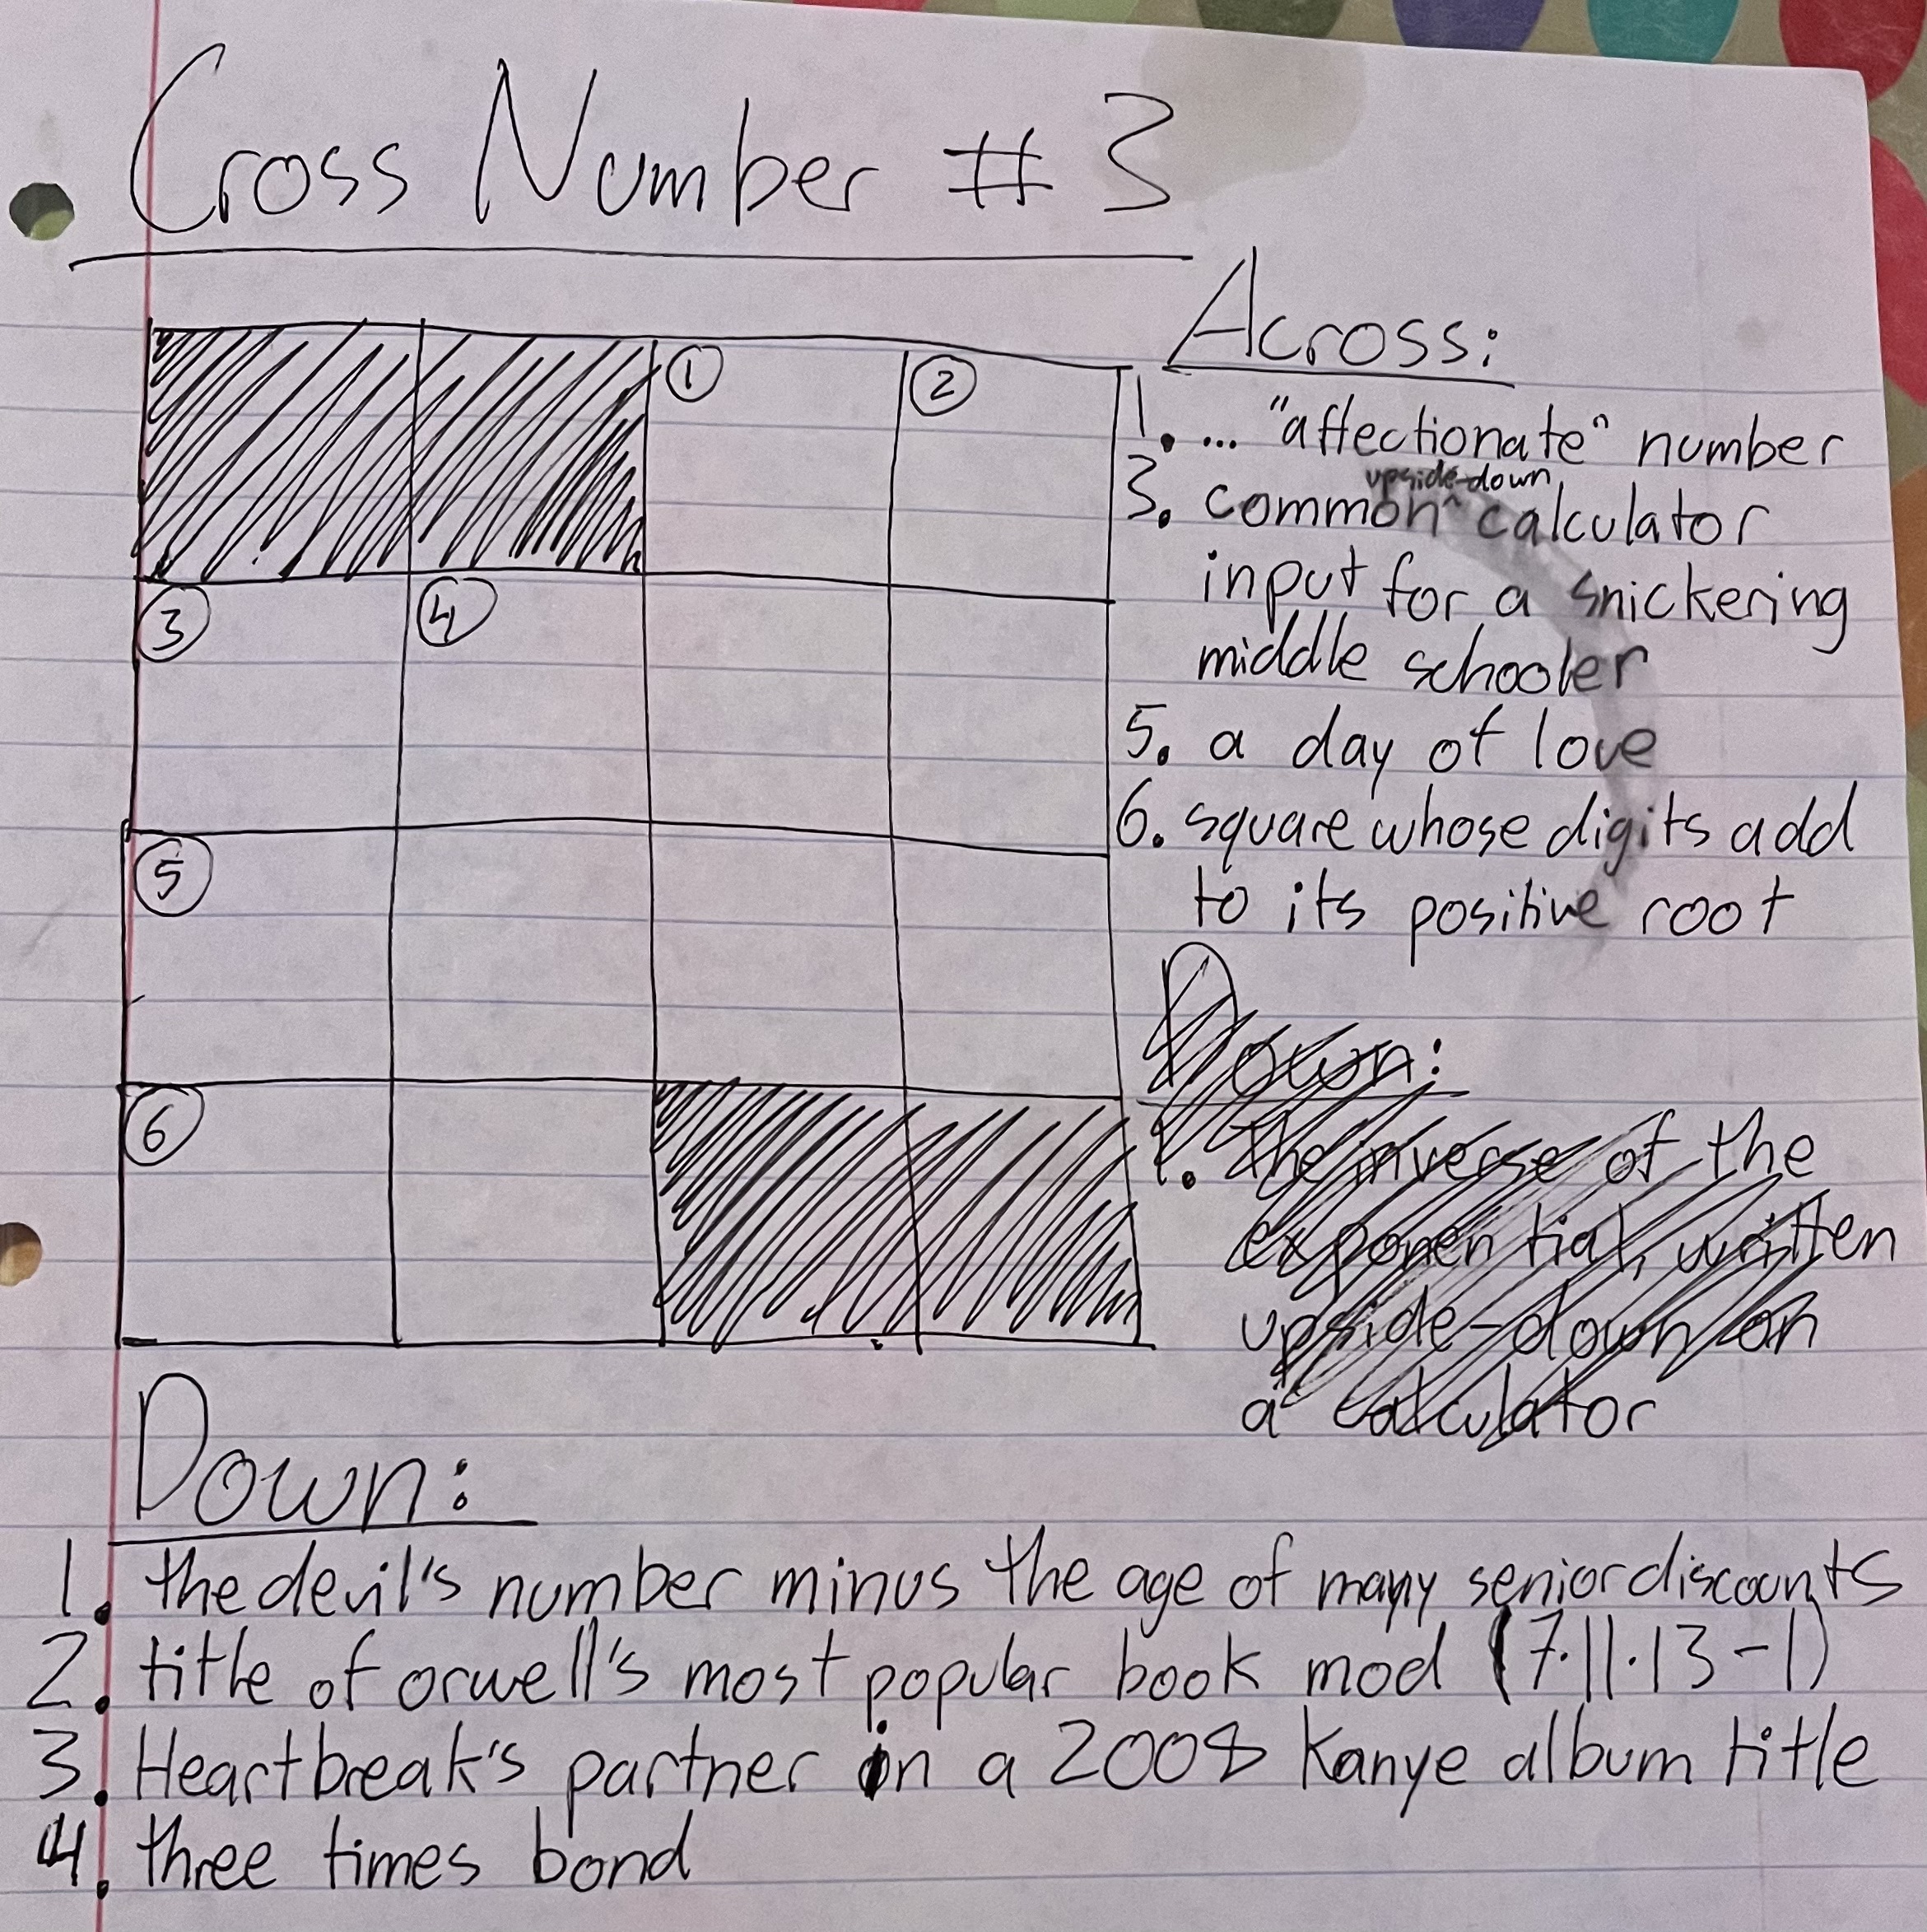 Cross Number # 3
① ②
③ ④
⑤
⑥
Across:
1. ... "affectionate" number
upside-down
3. common ^ calculator
input for a snickering
middle schooler
5. a day of love
6. square whose digits add
to its positive root
Down:
1. the inverse of the
exponential, written
upside-down on
a calculator
Down:
1. the devil's number minus the age of many senior discounts
2. title of orwell's most popular book mod (7·11·13-1)
3. Heartbreak's partner in a 2008 Kanye album title
4. three times bond